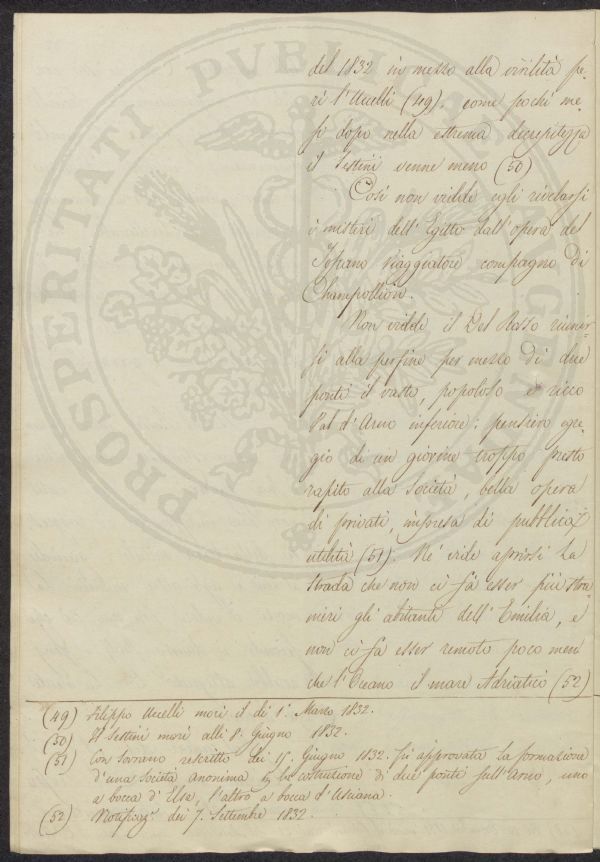 del 1832 in mezzo alla virilità pe-
rì l'Uccelli (49). come pochi me-
si dopo nella estrema decrepitezza
il Sestini venne meno (50)
Così non vidde egli rivelarsi
i misteri dell'Egitto dall'opera del
Toscano Viaggiatore compagno di
Champollion.
Non vidde il Del Rosso riunir=
si alla perfine per mezzo di due
ponti il vasto, popoloso e ricco
Val d'Arno inferiore; pensiero egre-
gio di un giovine troppo presto
rapito alla Società, bella opera
di privati, impresa di pubblica
utilità (51). Né vide aprirsi La
Strada che non ci fà esser più stra=
nieri gli abitanti dell'Emilia, e
non ci fa esser remoto poco men
che l'Oceano il mare Adriatico (52)
(49) Filippo Uccelli morì il dì 1°. Marzo 1832.
(50) Il Sestini morì alli 8. Giugno 1832.
(51) Con Sovrano rescritto dei Giugno 1832. fù approvata la formazione
d'una Società anonima la costruzione di due ponti sull'Arno, uno
a bocca d'Elsa, l'altro a bocca d'Usciana.
(52) Notificaz^e dei 7. Settembre 1832.
PROSPERITATI PVBLICAE